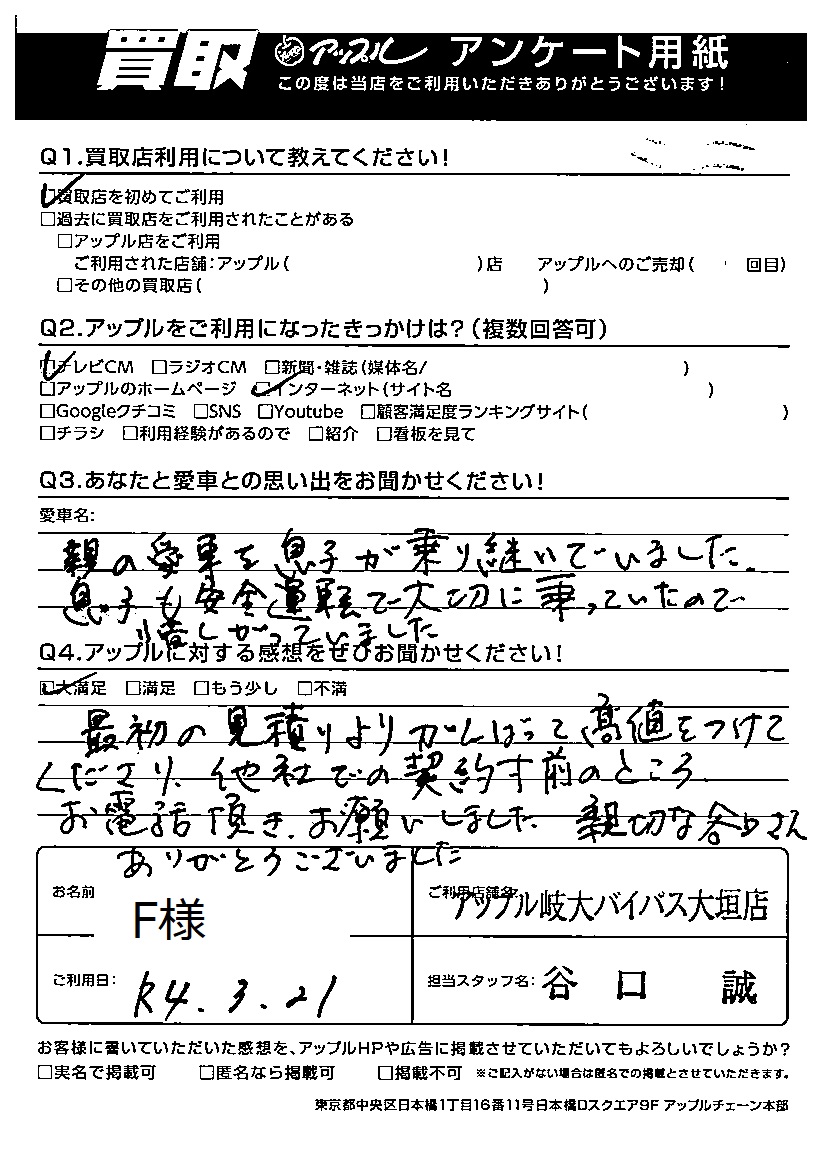 買取 アップル アンケート用紙
この度は当店をご利用いただきありがとうございます!
Q1.買取店利用について教えてください!
☑買取店を初めてご利用
□過去に買取店をご利用されたことがある
□アップル店をご利用
ご利用された店舗:アップル( )店 アップルへのご売却( 回目)
□その他の買取店( )
Q2.アップルをご利用になったきっかけは?(複数回答可)
☑テレビCM □ラジオCM □新聞・雑誌(媒体名/ )
□アップルのホームページ ☑インターネット(サイト名 )
□Googleクチコミ □SNS □Youtube □顧客満足度ランキングサイト( )
□チラシ □利用経験があるので □紹介 □看板を見て
Q3.あなたと愛車との思い出をお聞かせください!
愛車名:
親の愛車を息子が乗り継いでいました。
息子も安全運転で大切に乗っていたので
惜しがっていました
Q4.アップルに対する感想をぜひお聞かせください!
☑大満足 □満足 □もう少し □不満
最初の見積りよりがんばって高値をつけて
くださり、他社での契約寸前のところ
お電話頂き、お願いしました 親切な谷口さん
ありがとうございました
お名前 F様
ご利用店舗名: アップル岐大バイパス大垣店
ご利用日: R4.3.21
担当スタッフ名: 谷口 誠
お客様に書いていただいた感想を、アップルHPや広告に掲載させていただいてもよろしいでしょうか?
□実名で掲載可 □匿名なら掲載可 □掲載不可 ※ご記入がない場合は匿名での掲載とさせていただきます。
東京都中央区日本橋1丁目16番11号日本橋Dスクエア9F アップルチェーン本部